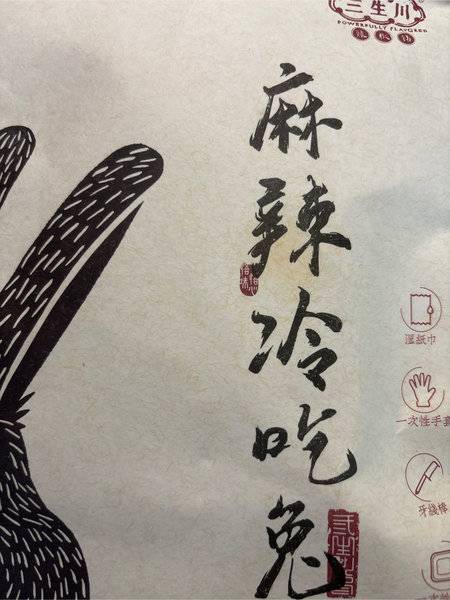 三生川
POWERFULLY FLAVORED
麻辣冷吃兔
湿紙巾
一次性手套
牙綫棒